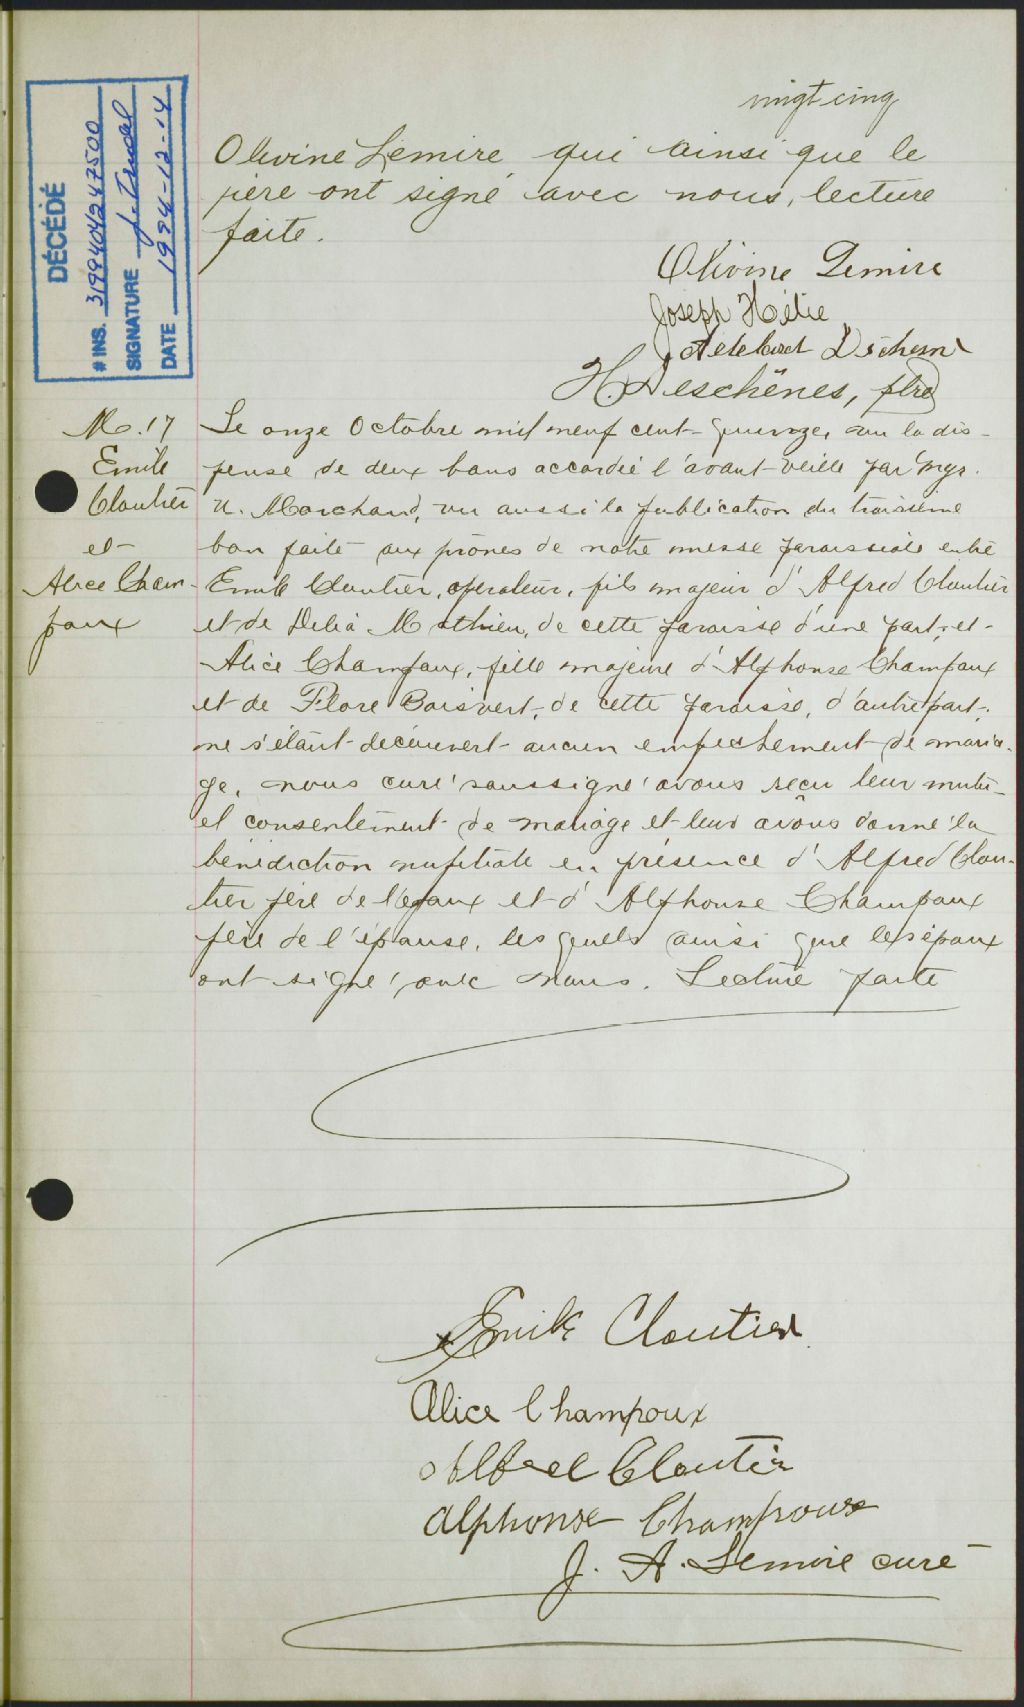 vingt cinq
DÉCÉDÉ
# INS. 3199404247500
SIGNATURE
DATE 1994-12-14
Olivine Lemire qui ainsi que le
père ont signé avec nous, lecture
faite.
Olivine Lemire
Joseph Hélie
H. Deschênes, ptre
M. 17
Emile
Cloutier
et
Alice Cham-
poux
Le onze Octobre mil neuf cent quinze, vu la dis-
pense de deux bans accordée l'avant-veille par Mgr.
N. Marchand, vu aussi la publication du troisième
ban faite aux prônes de notre messe paroissiale entre
Emile Cloutier, opérateur, fils majeur d'Alfred Cloutier
et de Delia Mathieu, de cette paroisse d'une part, et
Alice Champoux, fille majeure d'Alphonse Champoux
et de Flore Boisvert, de cette paroisse, d'autre part;
ne s'étant découvert aucun empêchement de maria-
ge, nous curé soussigné avons reçu leur mutu-
el consentement de mariage et leur avons donné la
bénédiction nuptiale en présence d'Alfred Clou-
tier père de l'époux et d'Alphonse Champoux
père de l'épouse, lesquels ainsi que les époux
ont signé avec nous. Lecture faite
Emile Cloutier
Alice Champoux
Alfred Cloutier
Alphonse Champoux
J. A. Lemire curé